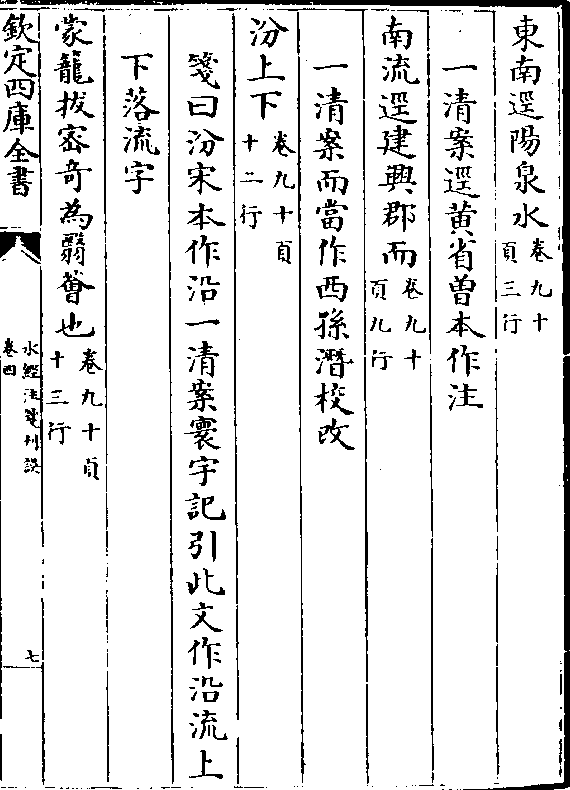 東南逕陽泉水卷九十頁三行
一清案逕黄省曽本作注
南流逕建興郡而卷九十頁九行
一清案而當作西孫潛校改
汾上下卷九十頁十二行
箋曰汾宋本作沿一清案寰宇記引此文作沿流上
下落流字
蒙籠拔密奇為翳薈也卷九十頁十三行
欽定四庫全書
水經注箋刋誤
卷四
七